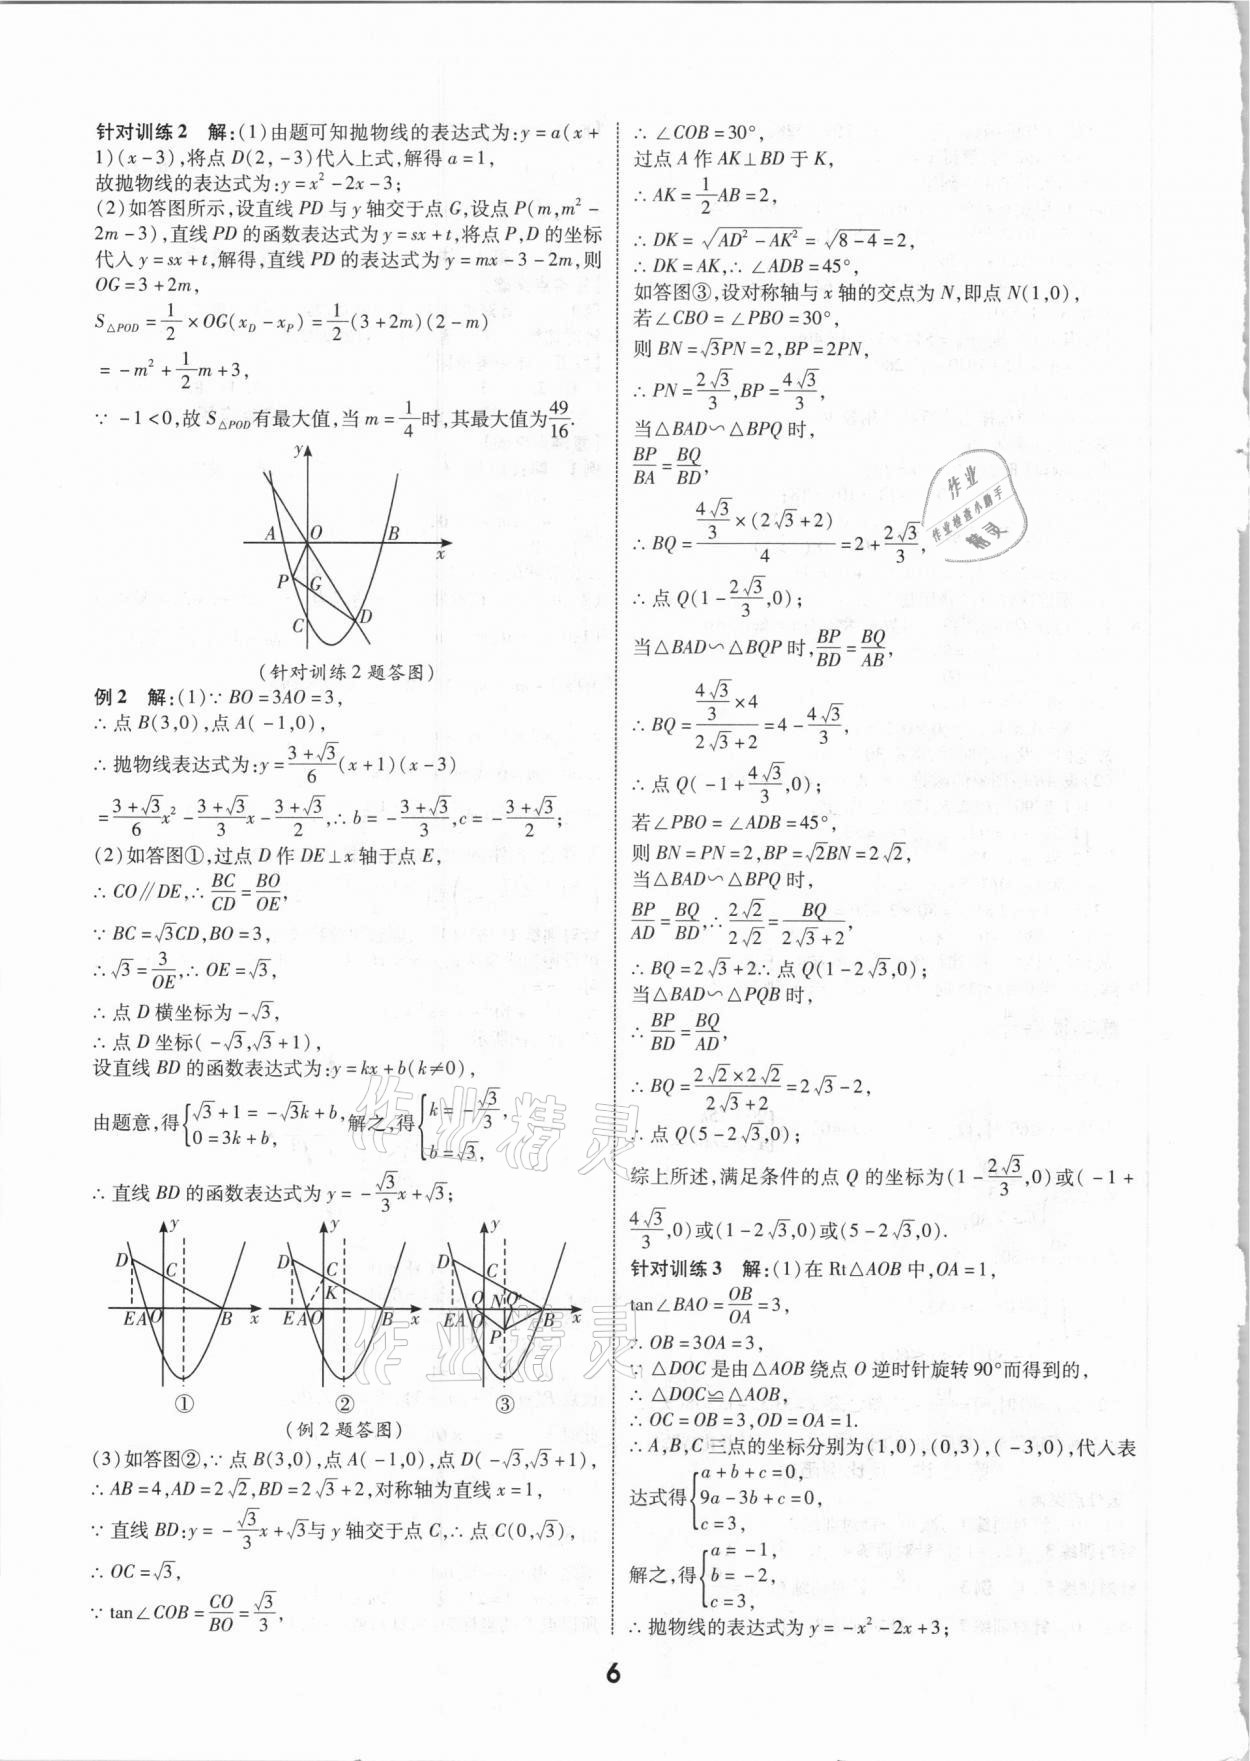 针对训练2 解:(1)由题可知抛物线的表达式为:y=a(x+
1)(x-3),将点D(2,-3)代入上式,解得a=1,
故抛物线的表达式为:y=x²-2x-3;
(2)如答图所示,设直线PD与y轴交于点G,设点P(m,m²-
2m-3),直线PD的函数表达式为y=sx+t,将点P,D的坐标
代入y=sx+t,解得,直线PD的表达式为y=mx-3-2m,则
OG=3+2m,
S△POD=1/2×OG(x_D-x_P)=1/2(3+2m)(2-m)
=-m²+1/2m+3,
∵-1<0,故S△POD有最大值,当m=1/4时,其最大值为49/16.
y
A O B
x
P G
C D
(针对训练2题答图)
例2 解:(1)∵BO=3AO=3,
∴点B(3,0),点A(-1,0),
∴抛物线表达式为:y=(3+√3)/6(x+1)(x-3)
=(3+√3)/6x²-(3+√3)/3x-(3+√3)/2,∴b=-(3+√3)/3,c=-(3+√3)/2;
(2)如答图①,过点D作DE⊥x轴于点E,
∴CO∥DE,∴BC/CD=BO/OE,
∵BC=√3CD,BO=3,
∴√3=3/OE,∴OE=√3,
∴点D横坐标为-√3,
∴点D坐标(-√3,√3+1),
设直线BD的函数表达式为:y=kx+b(k≠0),
由题意,得{√3+1=-√3k+b, 0=3k+b, 解之,得{k=-√3/3, b=√3,
∴直线BD的函数表达式为y=-√3/3x+√3;
y y y
D C D C D C
K Q N Q'
E A O B x E A O B x E A O B x
P
① ② ③
(例2题答图)
(3)如答图②,∵点B(3,0),点A(-1,0),点D(-√3,√3+1),
∴AB=4,AD=2√2,BD=2√3+2,对称轴为直线x=1,
∵直线BD:y=-√3/3x+√3与y轴交于点C,∴点C(0,√3),
∴OC=√3,
∵tan∠COB=CO/BO=√3/3,
∴∠COB=30°,
过点A作AK⊥BD于K,
∴AK=1/2AB=2,
∴DK=√(AD²-AK²)=√(8-4)=2,
∴DK=AK,∴∠ADB=45°,
如答图③,设对称轴与x轴的交点为N,即点N(1,0),
若∠CBO=∠PBO=30°,
则BN=√3PN=2,BP=2PN,
∴PN=2√3/3,BP=4√3/3,
当△BAD∽△BPQ时,
BP/BA=BQ/BD,
∴BQ=(4√3/3×(2√3+2))/4=2+2√3/3,
∴点Q(1-2√3/3,0);
当△BAD∽△BQP时,BP/BD=BQ/AB,
∴BQ=(4√3/3×4)/(2√3+2)=4-4√3/3,
∴点Q(-1+4√3/3,0);
若∠PBO=∠ADB=45°,
则BN=PN=2,BP=√2BN=2√2,
当△BAD∽△BPQ时,
BP/AD=BQ/BD,∴2√2/2√2=BQ/(2√3+2),
∴BQ=2√3+2∴点Q(1-2√3,0);
当△BAD∽△PQB时,
∴BP/BD=BQ/AD,
∴BQ=(2√2×2√2)/(2√3+2)=2√3-2,
∴点Q(5-2√3,0);
综上所述,满足条件的点Q的坐标为(1-2√3/3,0)或(-1+
4√3/3,0)或(1-2√3,0)或(5-2√3,0).
针对训练3 解:(1)在Rt△AOB中,OA=1,
tan∠BAO=OB/OA=3,
∴OB=3OA=3,
∵△DOC是由△AOB绕点O逆时针旋转90°而得到的,
∴△DOC≌△AOB,
∴OC=OB=3,OD=OA=1.
∴A,B,C三点的坐标分别为(1,0),(0,3),(-3,0),代入表
达式得{a+b+c=0, 9a-3b+c=0, c=3,
解之,得{a=-1, b=-2, c=3,
∴抛物线的表达式为y=-x²-2x+3;
6
作业
作业检查小助手
精灵
作业精灵
作业精灵